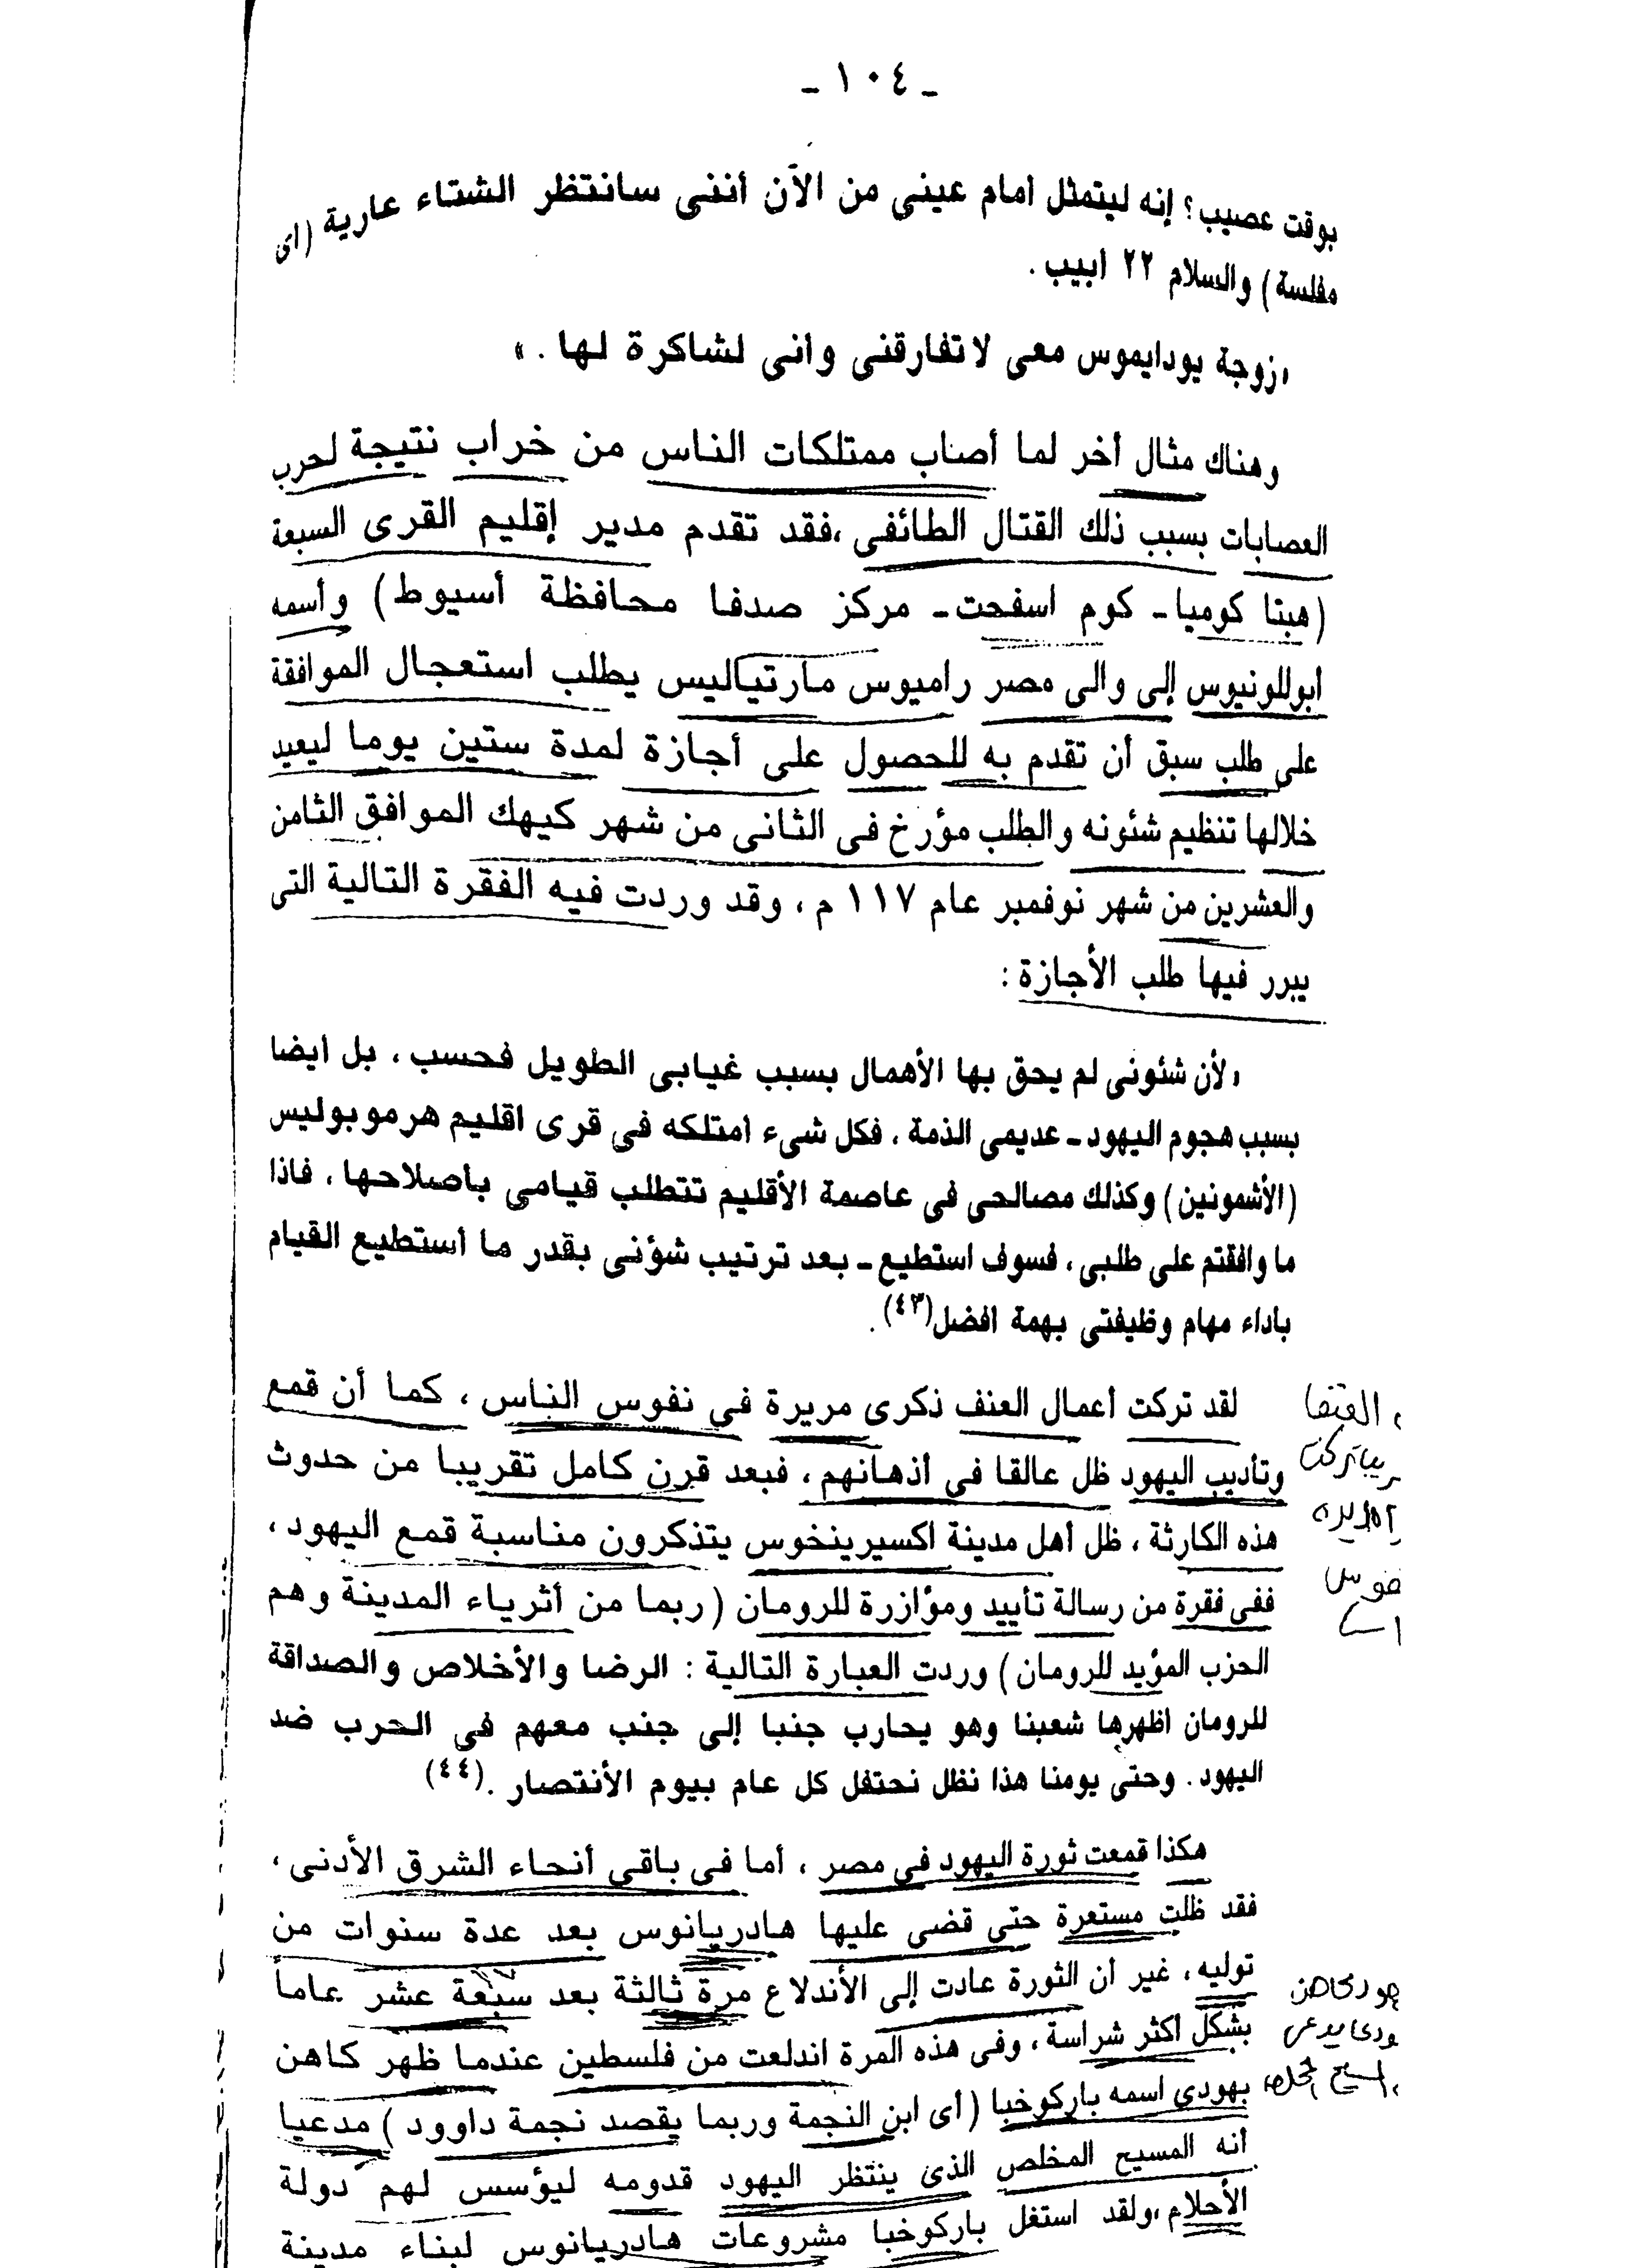 ـ ١٠٤ ـ
بوقت عصيب؟ إنه ليتمثل أمام عينى من الآن أننى سانتظر الشتاء عارية (اى
مفلسة) والسلام ٢٢ أبيب .
«زوجة يودايموس معى لاتفارقنى وانى لشاكرة لها . »
وهناك مثال أخر لما أصاب ممتلكات الناس من خراب نتيجة لحرب
العصابات بسبب ذلك القتال الطائفى ،فقد تقدم مدير إقليم القرى السبعة
(هبتا كوميا ـ كوم اسفحت ـ مركز صدفا محافظة أسيوط) وأسمه
ابوللونيوس إلى والى مصر راميوس مارتياليس يطلب استعجال الموافقة
على طلب سبق أن تقدم به للحصول على أجازة لمدة ستين يوما ليعيد
خلالها تنظيم شئونه والطلب مؤرخ فى الثانى من شهر كيهك الموافق الثامن
والعشرين من شهر نوفمبر عام ١١٧ م ، وقد وردت فيه الفقرة التالية التى
يبرر فيها طلب الأجازة :
«لأن شئونى لم يحق بها الأهمال بسبب غيابى الطويل فحسب ، بل ايضا
بسبب هجوم اليهود ـ عديمى الذمة ، فكل شىء امتلكه فى قرى اقليم هرموبوليس
(الأشمونين) وكذلك مصالحى فى عاصمة الأقليم تتطلب قيامى باصلاحها ، فاذا
ما وافقتم على طلبى ، فسوف استطيع ـ بعد ترتيب شؤنى بقدر ما أستطيع القيام
باداء مهام وظيفتى بهمة افضل(٤٣) .
لقد تركت أعمال العنف ذكرى مريرة فى نفوس الناس ، كما أن قمع
وتأديب اليهود ظل عالقا فى أذهانهم ، فبعد قرن كامل تقريبا من حدوث
هذه الكارثة ، ظل أهل مدينة اكسيرينخوس يتذكرون مناسبة قمع اليهود ،
ففى فقرة من رسالة تأييد ومؤازرة للرومان (ربما من أثرياء المدينة وهم
الحزب المؤيد للرومان) وردت العبارة التالية : الرضا والأخلاص والصداقة
للرومان اظهرها شعبنا وهو يحارب جنبا إلى جنب معهم فى الحرب ضد
اليهود . وحتى يومنا هذا نظل نحتفل كل عام بيوم الأنتصار .(٤٤)
هكذا قمعت ثورة اليهود فى مصر ، أما فى باقى أنحاء الشرق الأدنى ،
فقد ظلت مستعرة حتى قضى عليها هادريانوس بعد عدة سنوات من
توليه ، غير أن الثورة عادت إلى الأندلاع مرة ثالثة بعد سبعة عشر عاماً
بشكل أكثر شراسة ، وفى هذه المرة اندلعت من فلسطين عندما ظهر كاهن
يهودى اسمه باركوخبا (أى ابن النجمة وربما يقصد نجمة داوود) مدعيا
أنه المسيح المخلص الذى ينتظر اليهود قدومه ليؤسس لهم دولة
الأحلام ،ولقد استغل باركوخبا مشروعات هادريانوس لبناء مدينة